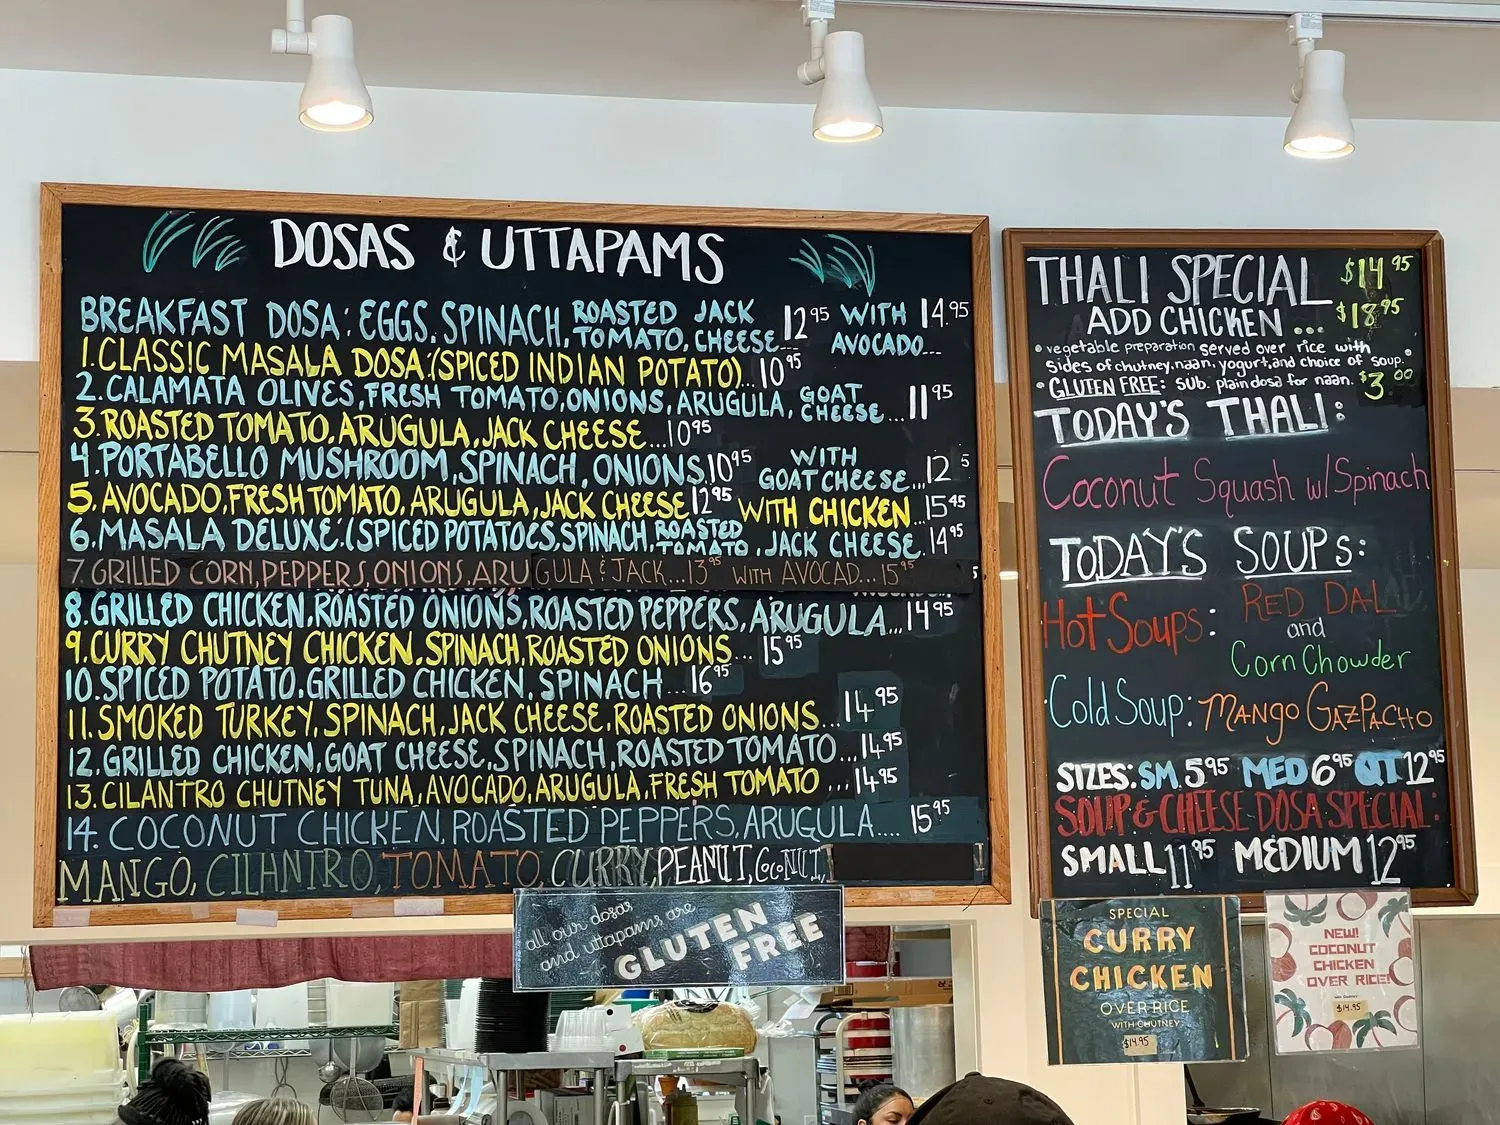 DOSAS & UTTAPAMS
BREAKFAST DOSA: EGGS, SPINACH, ROASTED TOMATO, JACK CHEESE... 12.95 WITH AVOCADO... 14.95
1. CLASSIC MASALA DOSA: (SPICED INDIAN POTATO)... 10 95
2. CALAMATA OLIVES, FRESH TOMATO, ONIONS, ARUGULA, GOAT CHEESE... 11 95
3. ROASTED TOMATO, ARUGULA, JACK CHEESE... 10 95
4. PORTABELLO MUSHROOM, SPINACH, ONIONS 10 95 WITH GOAT CHEESE... 12 5
5. AVOCADO, FRESH TOMATO, ARUGULA, JACK CHEESE 12 95 WITH CHICKEN... 15 45
6. MASALA DELUXE: (SPICED POTATOES, SPINACH, ROASTED TOMATO, JACK CHEESE. 14 95
7. GRILLED CORN, PEPPERS, ONIONS, ARUGULA & JACK... 13 95 WITH AVOCAD... 15 95
8. GRILLED CHICKEN, ROASTED ONIONS, ROASTED PEPPERS, ARUGULA... 14 95
9. CURRY CHUTNEY CHICKEN, SPINACH, ROASTED ONIONS... 15 95
10. SPICED POTATO, GRILLED CHICKEN, SPINACH... 16 95
11. SMOKED TURKEY, SPINACH, JACK CHEESE, ROASTED ONIONS... 14 95
12. GRILLED CHICKEN, GOAT CHEESE, SPINACH, ROASTED TOMATO... 14.95
13. CILANTRO CHUTNEY TUNA, AVOCADO, ARUGULA, FRESH TOMATO... 14 95
14. COCONUT CHICKEN, ROASTED PEPPERS, ARUGULA.... 15 95
MANGO, CILANTRO, TOMATO, CURRY, PEANUT, COCONUT,
all our dosas
and uttapams are
GLUTEN
FREE
THALI SPECIAL $14 95
ADD CHICKEN ... $18 95
• vegetable preparation served over rice with
sides of chutney, naan, yogurt, and choice of soup.
• GLUTEN FREE: sub. plain dosa for naan. $3 00
TODAY'S THALI:
Coconut Squash w/ Spinach
TODAY'S SOUPS:
Hot Soups: RED DAL
and
Corn Chowder
Cold Soup: MANGO GAZPACHO
SIZES: SM. 5 95 MED 6 95 QT 12 95
SOUP & CHEESE DOSA SPECIAL:
SMALL 11 95 MEDIUM 12 95
SPECIAL
CURRY
CHICKEN
OVER RICE
WITH CHUTNEY
$14.95
NEW!
COCONUT
CHICKEN
OVER RICE!
$14.95